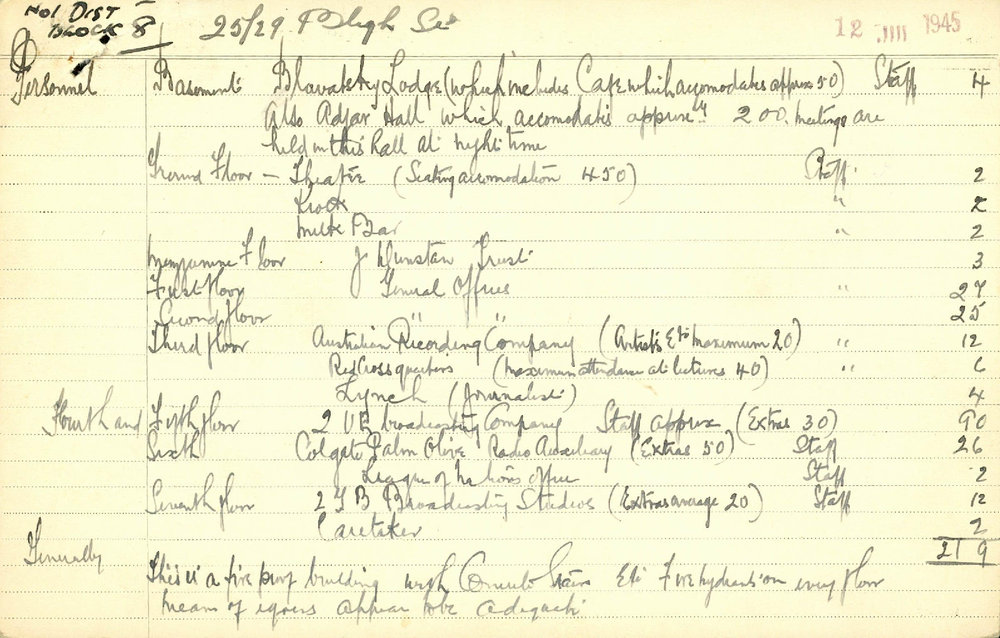 No1 DIST
BLOCK 8 25/29 Bligh St 12 JUL 1945
Personnel Basement Blavatsky Lodge (which includes Cafe which accomodates approx 50) Staff 4
Also Adyar Hall which accomodates approx 200. meetings are
held in this hall at night time
Ground Floor — Theatre (Seating accomodation 450) Staff 2
Kiosk " 2
Milk Bar " 2
Mezzanine Floor J Dunstan Trust 3
First floor General Offices " 27
Second floor " " 25
Third floor Australian Recording Company (Artists Etc maximum 20) " 12
Red Cross quarters (maximum attendance at lectures 40) " 6
Lynch (Journalist) 4
Fourth and Fifth floor 2 UE broadcasting Company Staff approx (Extras 30) 90
Sixth Colgate Palm Olive Radio Auxiliary (Extras 50) Staff 26
League of Nations office Staff 2
Seventh floor 2 GB Broadcasting Studios (Extras average 20) Staff 12
Caretaker 2
219
Generally
This is a fire proof building with Concrete Stairs Etc Fire hydrants on every floor
means of egress appear to be adequate